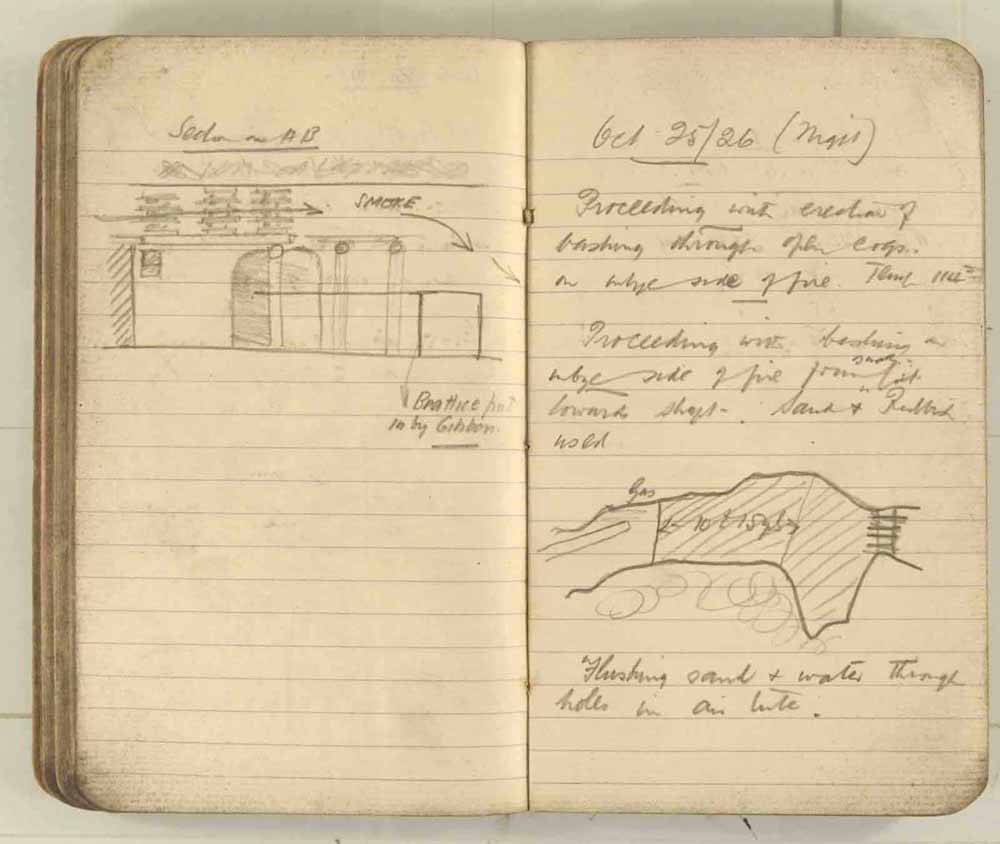 Section on AB
SMOKE
Brattice put
in by Gibbon.
Oct 25/26 (Night)
Proceeding with erection of
bashing through open cogs.
on inbye side of fire. Temp
Proceeding with bashing on
inbye side of fire from
towards shaft. Sand &
used
Gas
10 to 15 yds
Flushing sand & water through
holes in air tube.